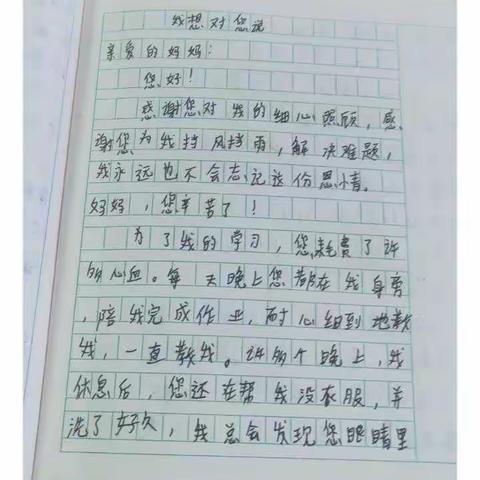 我想对您说
亲爱的妈妈:
您好!
感谢您对我的细心照顾,感
谢您为我挡风挡雨,解决难题,
我永远也不会忘记这份恩情。
妈妈,您辛苦了!
为了我的学习,您耗费了许
多心血。每天晚上您都在我身旁
,陪我完成作业,耐心细到地教
我,一直教我。许多个晚上,我
休息后,您还在帮我没衣服,并
洗了好久,我总会发现您眼睛里